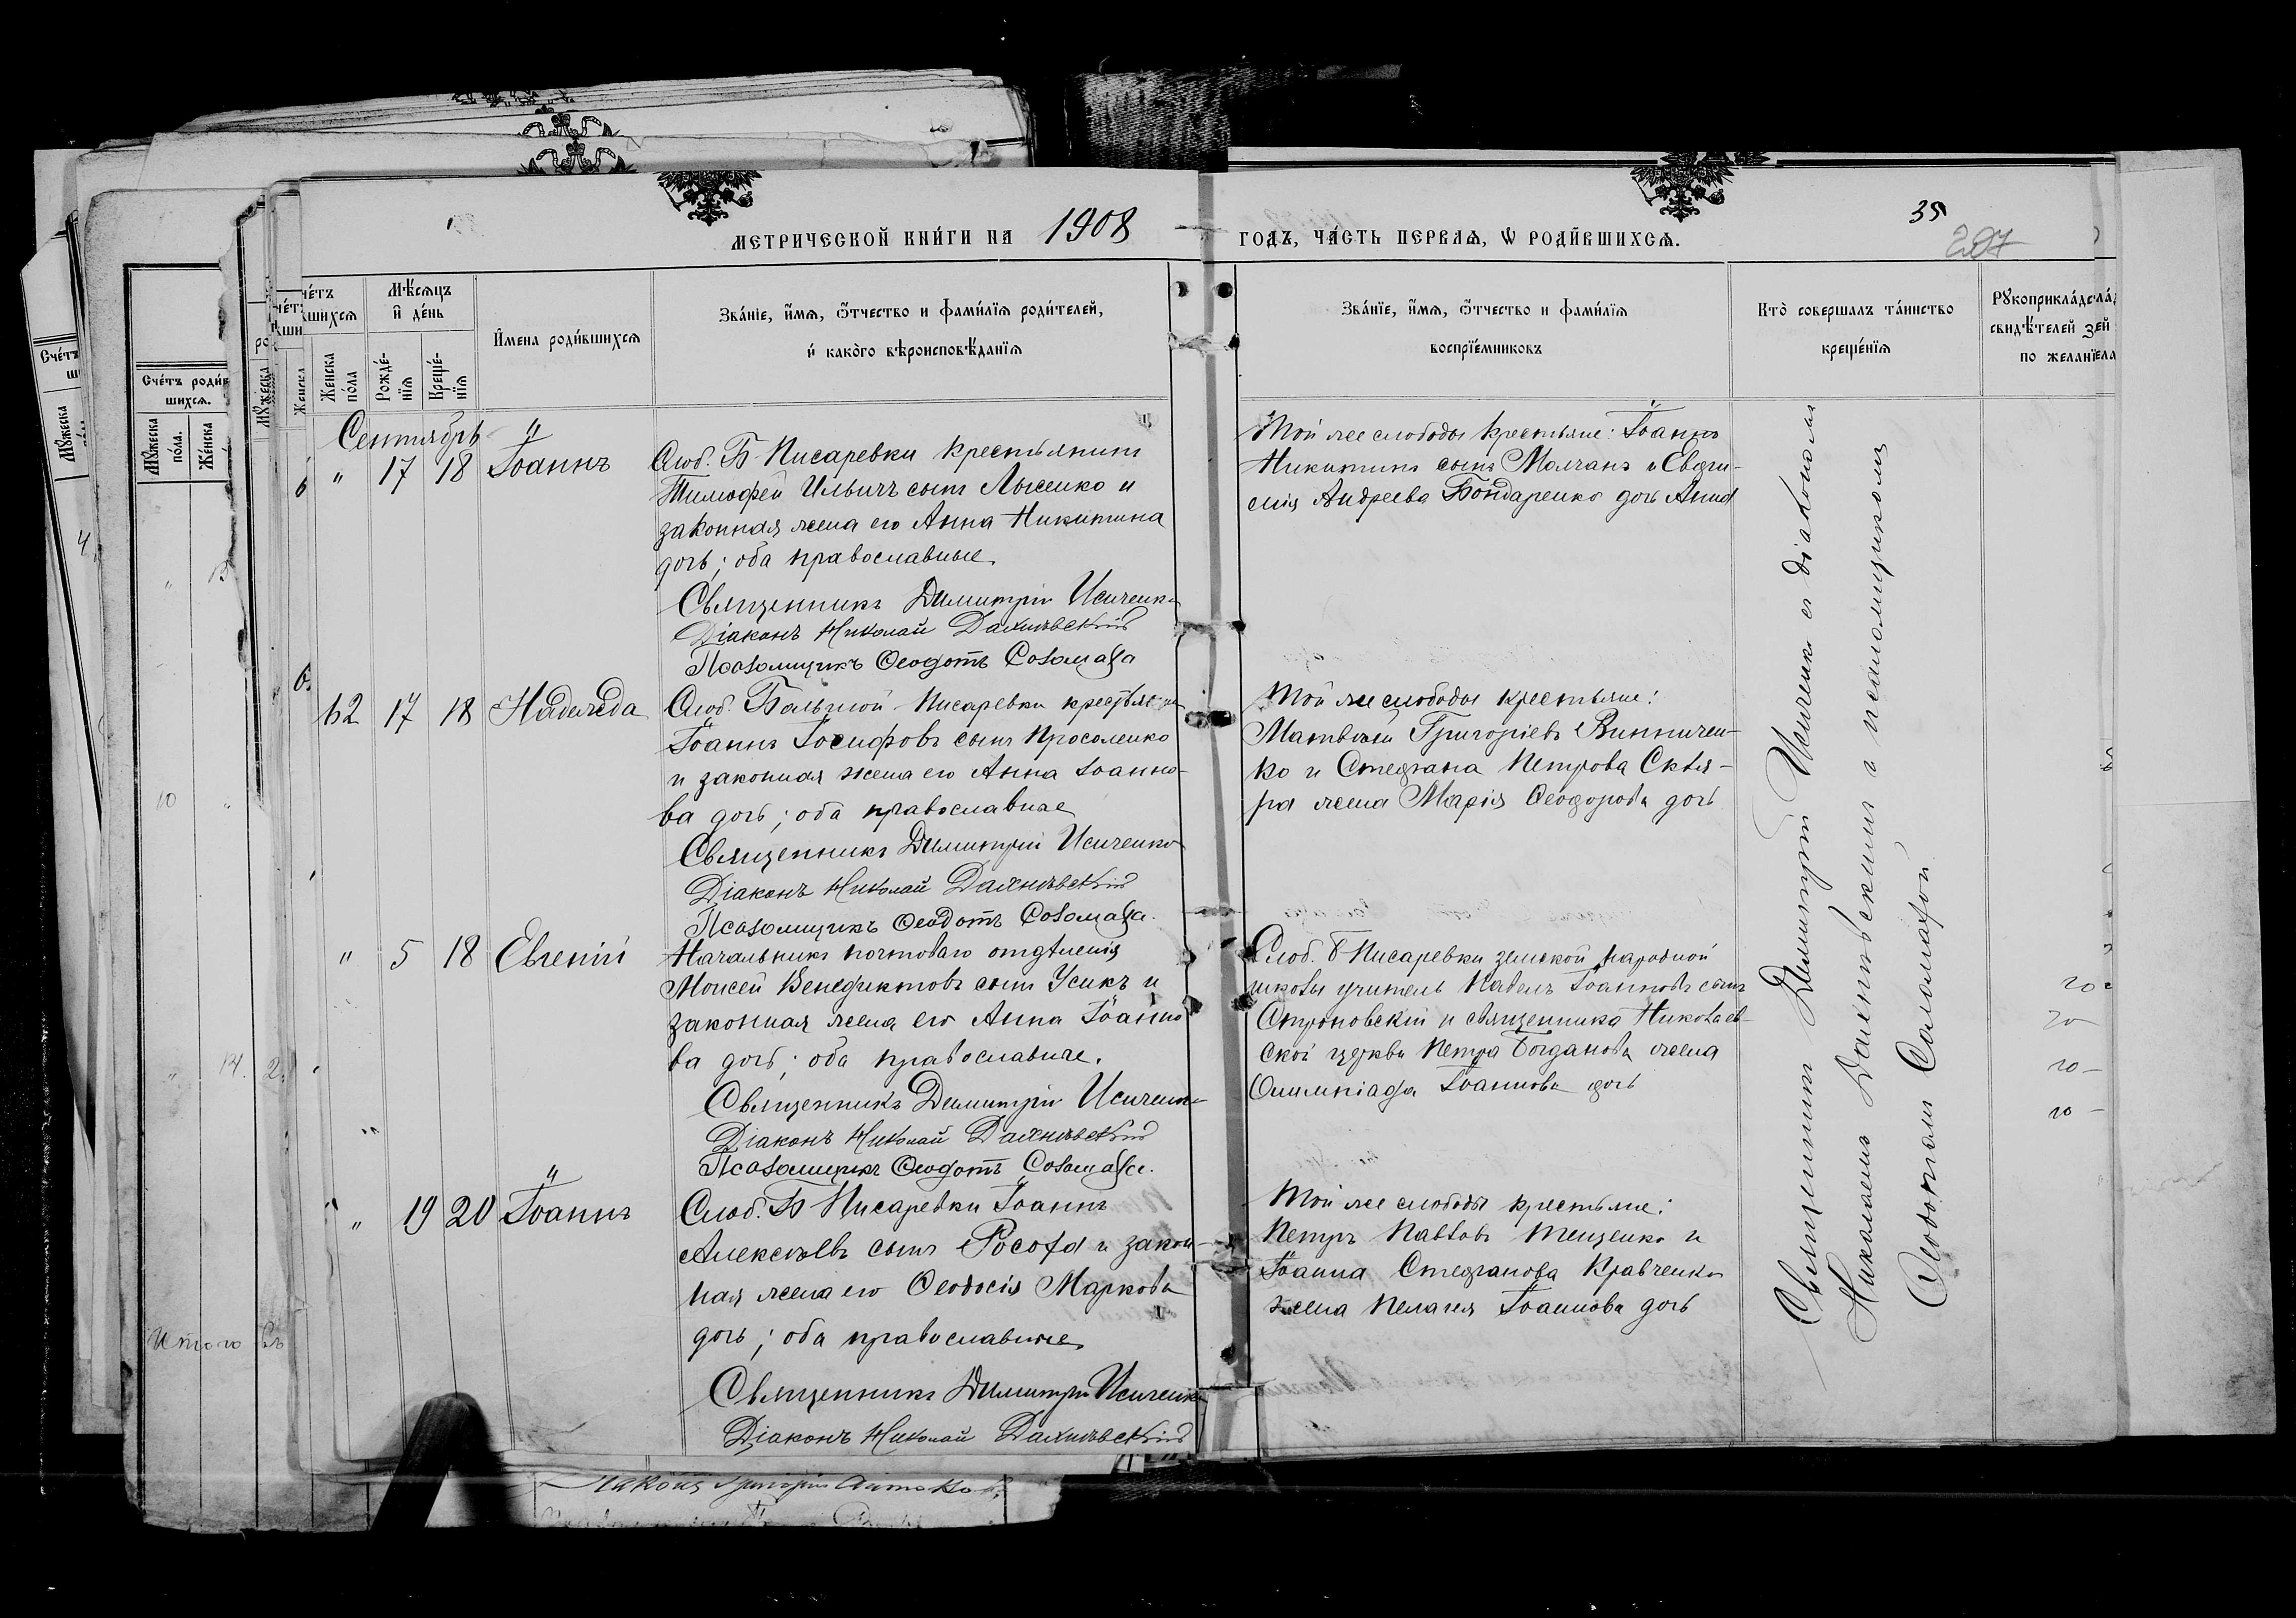 МЕТРИЧЕСКОЙ КНИ́ГИ НА 1908
ГОДЪ, ЧА́СТЬ ПЕРВАѦ, Ѡ РОДИ́ВШИХСѦ.
35
207
Сче́тъ роди́в
шихсѧ.
Мꙋжеска
по́ла.
Же́нска
Женска
по́ла
Мѣ́сѧцъ
и҆ де́нь
Рожде́-
нїѧ
Креще́-
нїѧ
И҆мена роди́вшихсѧ
Зва́нїе, и҆́мѧ, ѻ҆́тчество и фами́лїѧ роди́телей,
и҆ како́гѡ вѣроисповѣ́данїѧ
Зва́нїе, и҆́мѧ, ѻ҆́тчество и фами́лїѧ
воспрїе́мниковъ
Кто̀ совершалъ та́инство
креще́нїѧ
свидѣ́телей
по желанїю
Сентябрь
" 17 18 Іоаннъ
Слоб. Б-Писаревки крестьянинъ
Тимофей Ильичъ сынъ Лысенко и
законная жена его Анна Никитина
дочь; оба православные.
Священникъ Димитрій Исиченко
Діаконъ Николай Далиевскій
Псаломщикъ Ѳеодотъ Соломаха
Той же слободы крестьяне: Іоаннъ
Никитинъ сынъ Молчанъ и Евфи-
мія Андреева Бондаренко дочь
62 17 18 Надежда
Слоб. Большой Писаревки крестьянинъ
Іоаннъ Іосифовъ сынъ Просоленко
и законная жена его Анна Іоанно-
ва дочь; оба православные
Священникъ Димитрій Исиченко
Діаконъ Николай Далиевскій
Псаломщикъ Ѳеодотъ Соломаха.
Той же слободы крестьяне:
Матвѣй Григоріевъ Винничен-
ко и Стефана Петрова Скля-
ра жена Марія Ѳеодорова дочь
" 5 18 Евгеній
Начальникъ почтоваго отдѣленія
Моисей Венедиктовъ сынъ Усикъ и
законная жена его Анна Іоанно
ва дочь; оба православные.
Священникъ Димитрій Исиченко
Діаконъ Николай Далиевскій
Псаломщикъ Ѳеодотъ Соломаха.
Слоб. Б Писаревки земской народной
школы учитель Павелъ Іоанновъ сынъ
Строновскій и священника Николаев-
ской церкви Петра Богданова жена
Олимпіада Іоаннова дочь
" 19 20 Іоаннъ
Слоб. Б-Писаревки Іоаннъ
Алексѣевъ сынъ Росоха и закон-
ная жена его Ѳеодосія Маркова
дочь; оба православные
Священникъ Димитрій Исиченко
Діаконъ Николай Далиевскій
Той же слободы крестьяне:
Петръ Павловъ Тещенко и
Іоанна Стефанова Кравченко
жена Пелагея Іоаннова дочь
Священникъ Димитрій Исиченко съ діакономъ
Николаемъ Далиевскимъ и псаломщикомъ
Ѳеодотомъ Соломахой
Итого